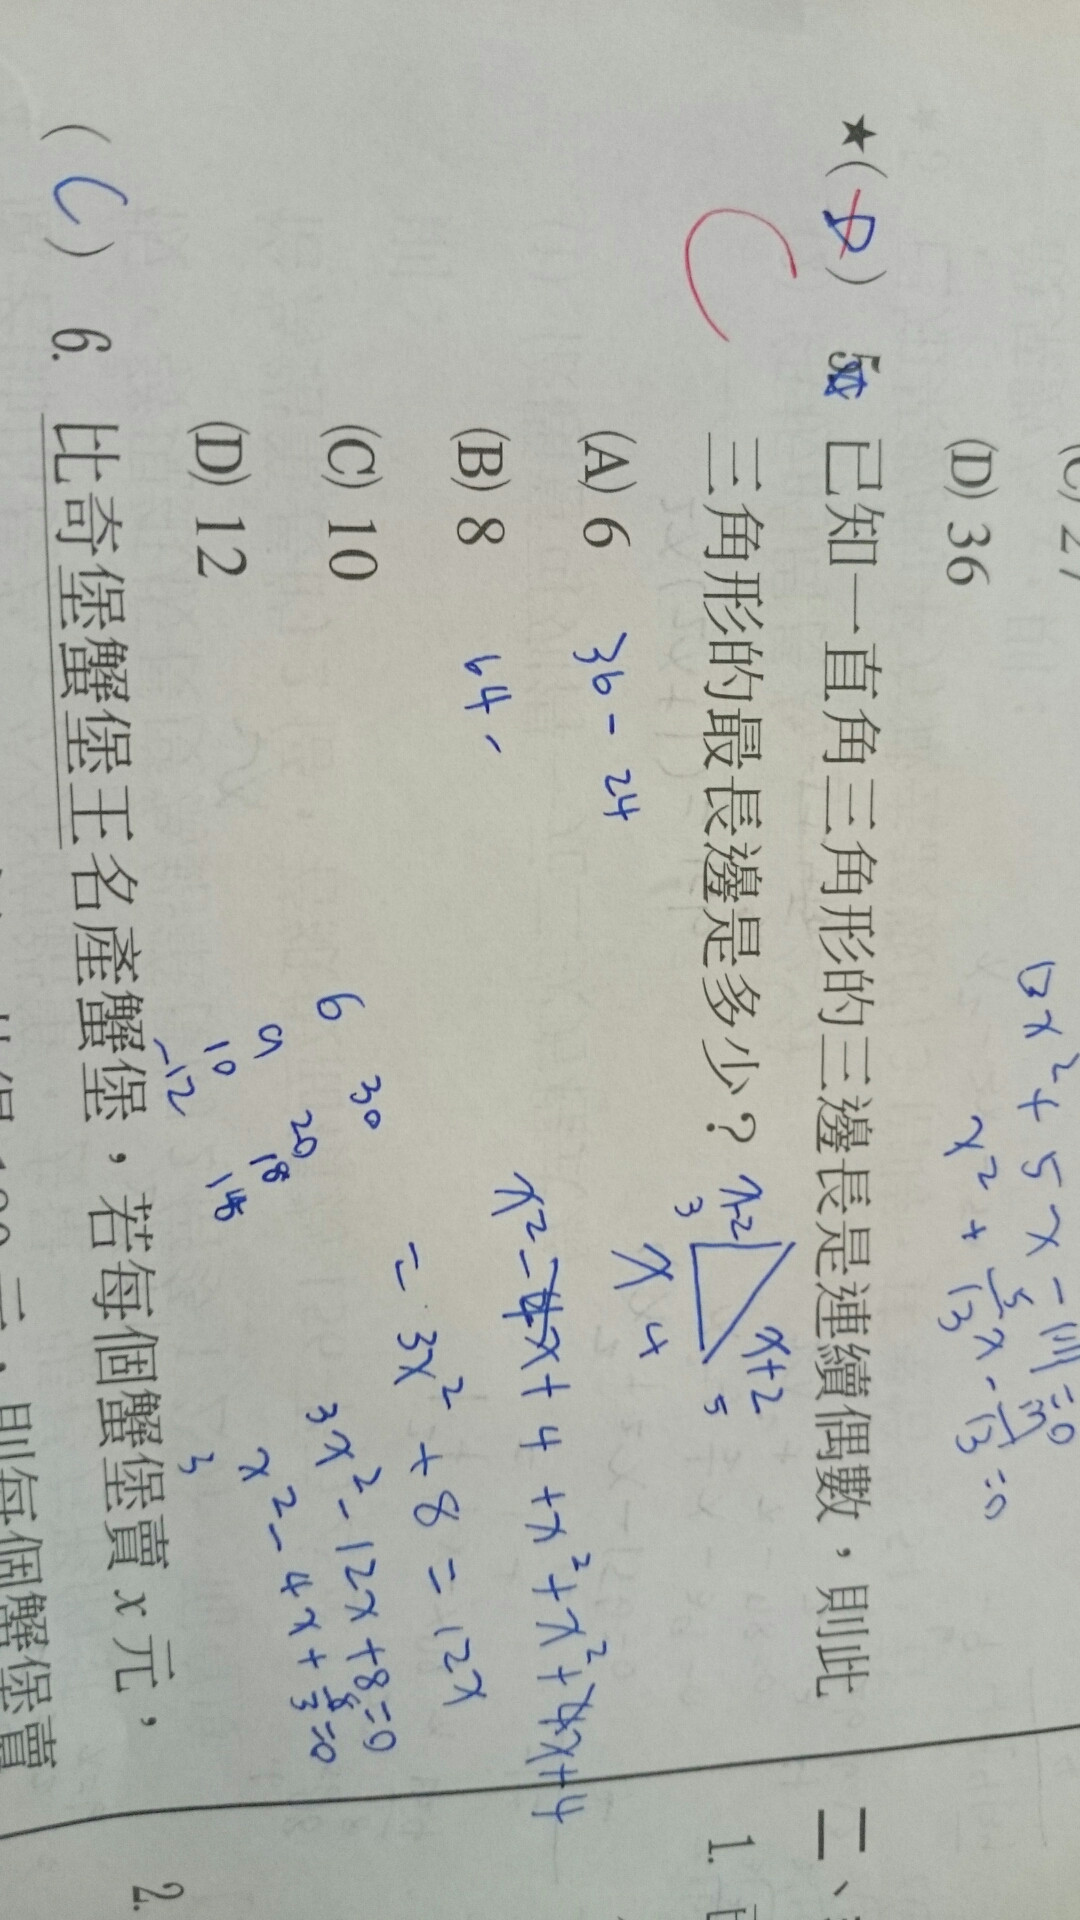 (D) 36
13x² + 5x - 111 = 0
x² + 5/13 x - 111/13 = 0
★( D ) 5. 已知一直角三角形的三邊長是連續偶數，則此
三角形的最長邊是多少？
C
x-2
x+2
3
x 4
5
(A) 6 36 - 24
(B) 8 64 -
(C) 10
(D) 12
x² - 4x + 4 + x² + x² + 4x + 4
= 3x² + 8 = 12x
3x² - 12x + 8 = 0
x² - 4x + 8/3 = 0
3
6 30
9 20
10 18
-12
( C ) 6. 比奇堡蟹堡王名產蟹堡，若每個蟹堡賣 x 元，
則每個蟹堡賣
二、
1.
2.